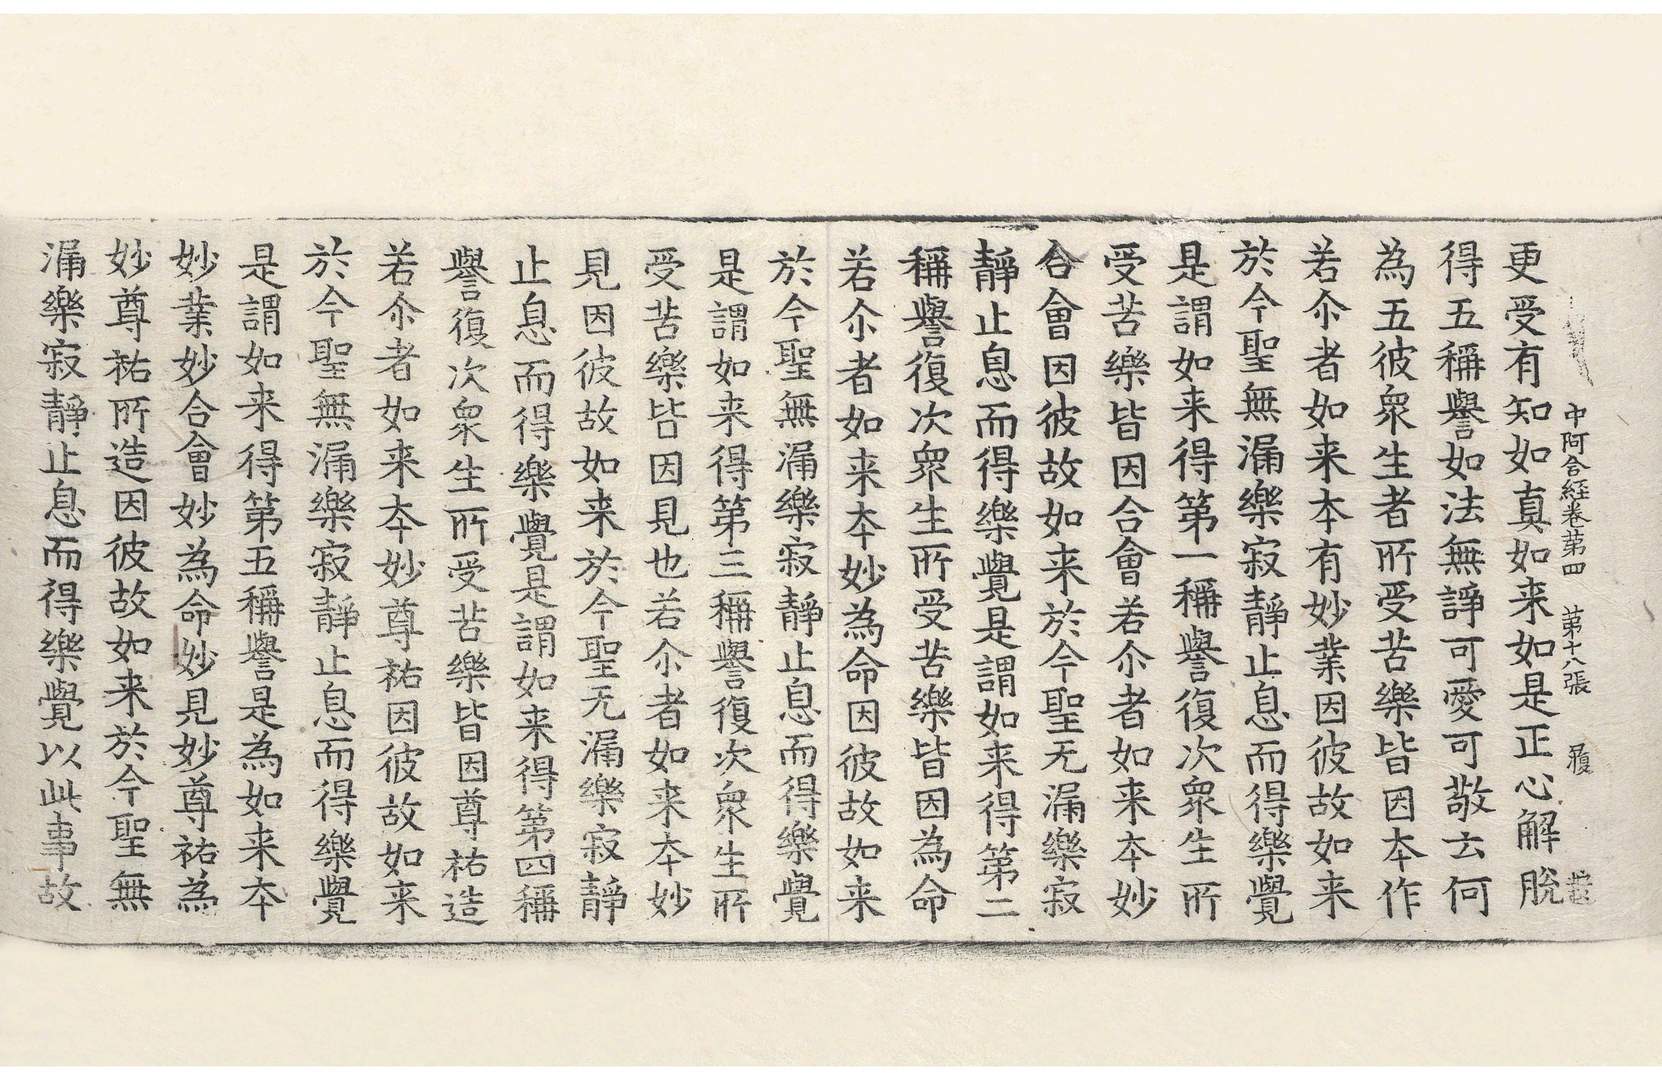 中阿含経卷苐四　苐十八張　履
更受有知如真如来如是正心解脫
得五稱譽如法無諍可愛可敬云何
為五彼衆生者所受苦樂皆因本作
若尒者如来本有妙業因彼故如来
於今聖無漏樂寂靜止息而得樂覺
是謂如来得第一稱譽復次衆生所
受苦樂皆因合會若尒者如来本妙
合會因彼故如来於今聖无漏樂寂
靜止息而得樂覺是謂如来得第二
稱譽復次衆生所受苦樂皆因為命
若尒者如来本妙為命因彼故如来
於今聖無漏樂寂靜止息而得樂覺
是謂如来得第三稱譽復次衆生所
受苦樂皆因見也若尒者如来本妙
見因彼故如来於今聖无漏樂寂靜
止息而得樂覺是謂如来得第四稱
譽復次衆生所受苦樂皆因尊祐造
若尒者如来本妙尊祐因彼故如来
於今聖無漏樂寂靜止息而得樂覺
是謂如来得第五稱譽是為如来本
妙業妙合會妙為命妙見妙尊祐為
妙尊祐所造因彼故如来於今聖無
漏樂寂靜止息而得樂覺以此事故